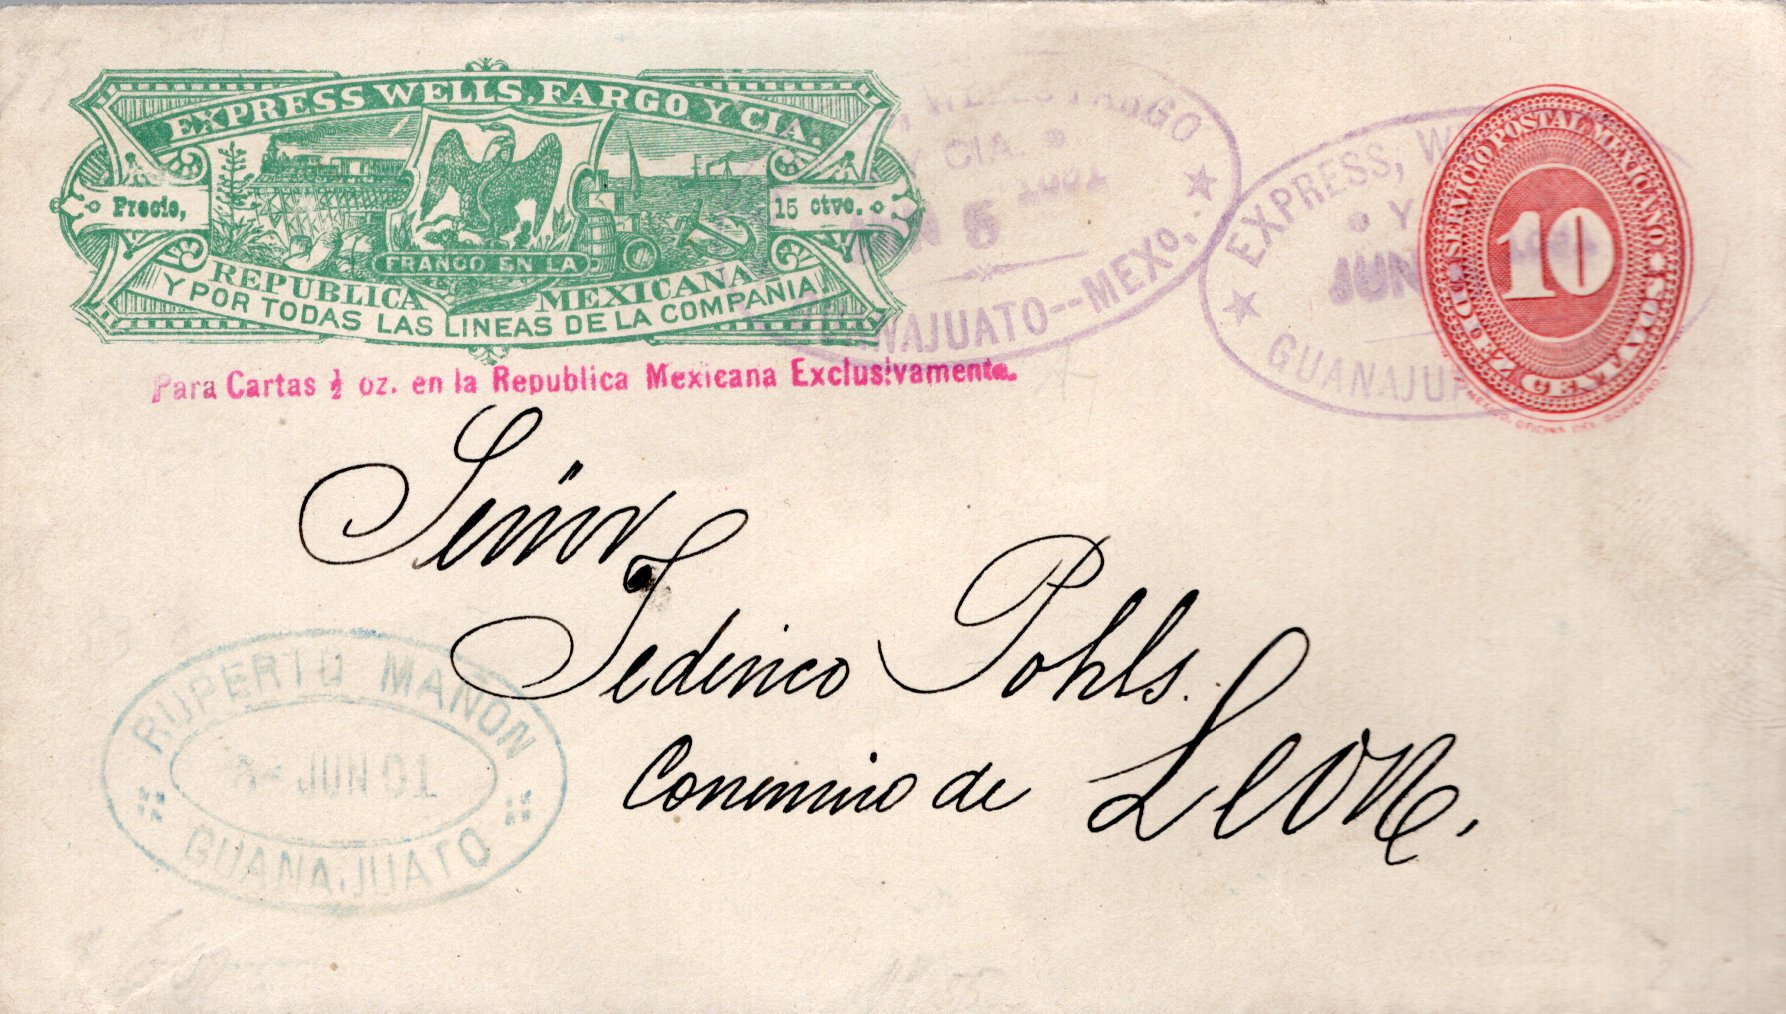 EXPRESS WELLS, FARGO Y CIA.
Precio, 15 ctvs.
FRANCO EN LA
REPUBLICA MEXICANA
Y POR TODAS LAS LINEAS DE LA COMPAÑIA.
Para Cartas ½ oz. en la Republica Mexicana Exclusivamente.
WELLS FARGO
Y CIA.
5 1901
GUANAJUATO--MEXO.
EXPRESS,
Y
JUN 1901
SERVICIO POSTAL MEXICANO
10
DIEZ CENTAVOS
Señor
Federico Pohls.
Conmino de Leon.
RUPERTO MAÑON
JUN 01
GUANAJUATO